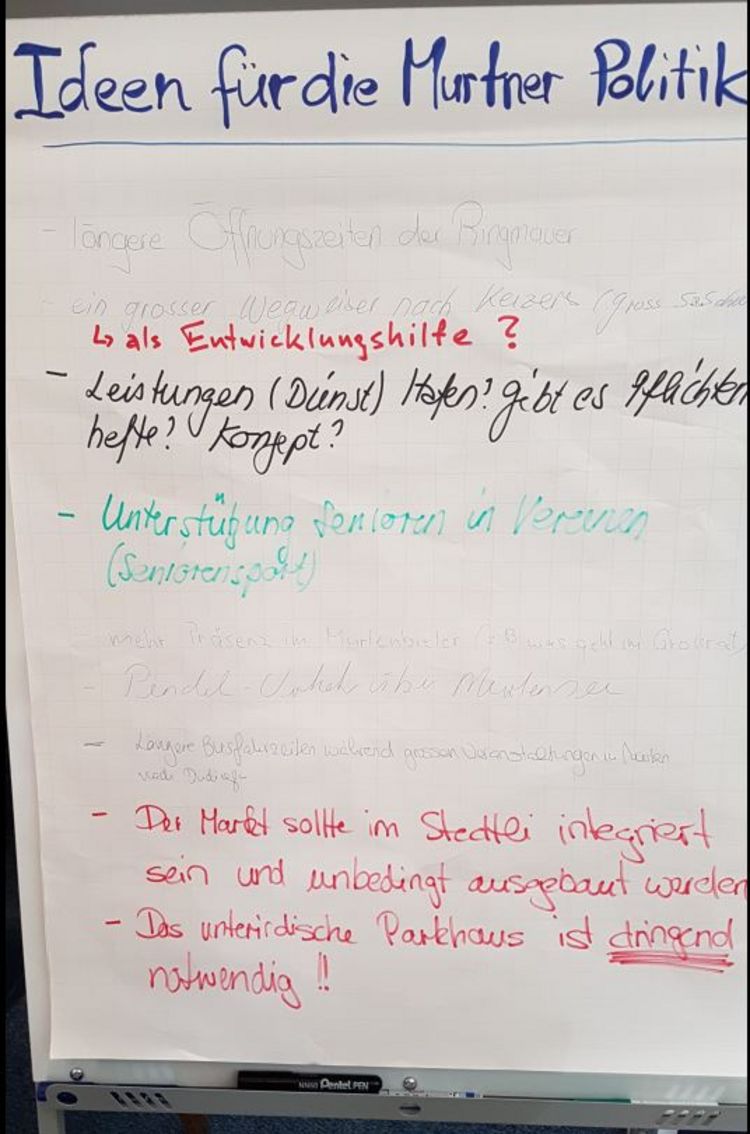 Ideen für die Murtner Politik
- längere Öffnungszeiten der Ringmauer
- ein grosser Wegweiser nach Kerzers (gross
↳ als Entwicklungshilfe ?
- Leistungen (Dienst) Hafen? gibt es Pflichten
hefte? Konzept?
- Unterstützung Senioren in Vereinen
(Seniorensport)
- mehr Präsenz im Murtenbieter (z.B. was geht im Grossrat)
- Pendel-Verkehr über Murtensee
- Längere Busfahrzeiten während grossen Veranstaltungen in Murten
nach
- Der Markt sollte im Stedtli integriert
sein und unbedingt ausgebaut werden
- Das unterirdische Parkhaus ist dringend
notwendig !!
NN60 Pentel PEN